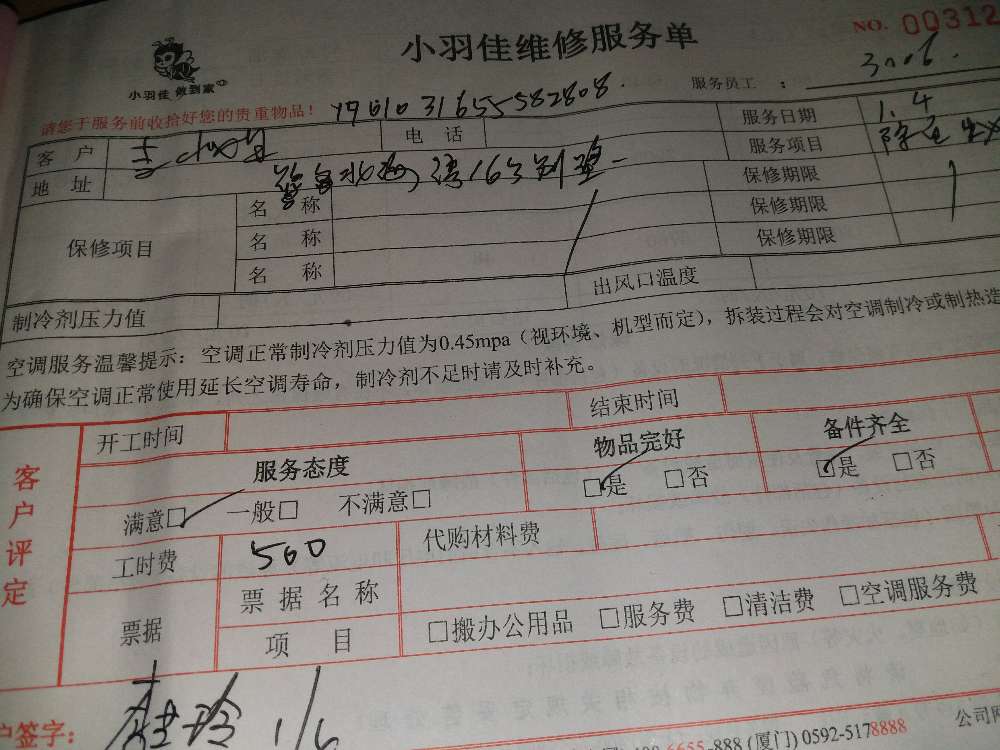 小羽佳维修服务单
NO. 00312
小羽佳 做到家
服务员工 : 3006
请您于服务前收拾好您的贵重物品!
Y901031655582808
客户 电话 服务日期 1.4
地址 16 别墅 服务项目
保修项目 名称 保修期限
名称 保修期限
名称 保修期限
制冷剂压力值 出风口温度
空调服务温馨提示:空调正常制冷剂压力值为0.45mpa(视环境、机型而定),拆装过程会对空调制冷或制热造
为确保空调正常使用延长空调寿命,制冷剂不足时请及时补充。
客户评定
开工时间 结束时间
服务态度 物品完好 备件齐全
满意□ 一般□ 不满意□ □是 □否 □是 □否
工时费 560 代购材料费
票据 票据名称
项目 □搬办公用品 □服务费 □清洁费 □空调服务费
户签字: 桂玲 1/6
6655-888 (厦门) 0592-5178888 公司网